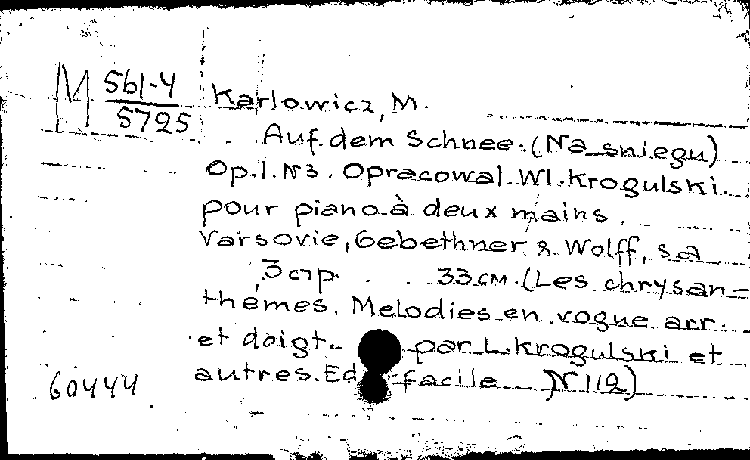 M 561-4
5725
Karlowicz, M.
Auf dem Schnee. (Na sniegu)
Op.1. N3. Opracowal Wl. Krogulski.
pour piano à deux mains.
Varsovie, Gebethner & Wolff, s.a
3 стр. 33 см. (Les chrysan=
thèmes. Melodies en vogue arr.
et doigt. par L. Krogulski et
autres. Ed facile N 112)
60444